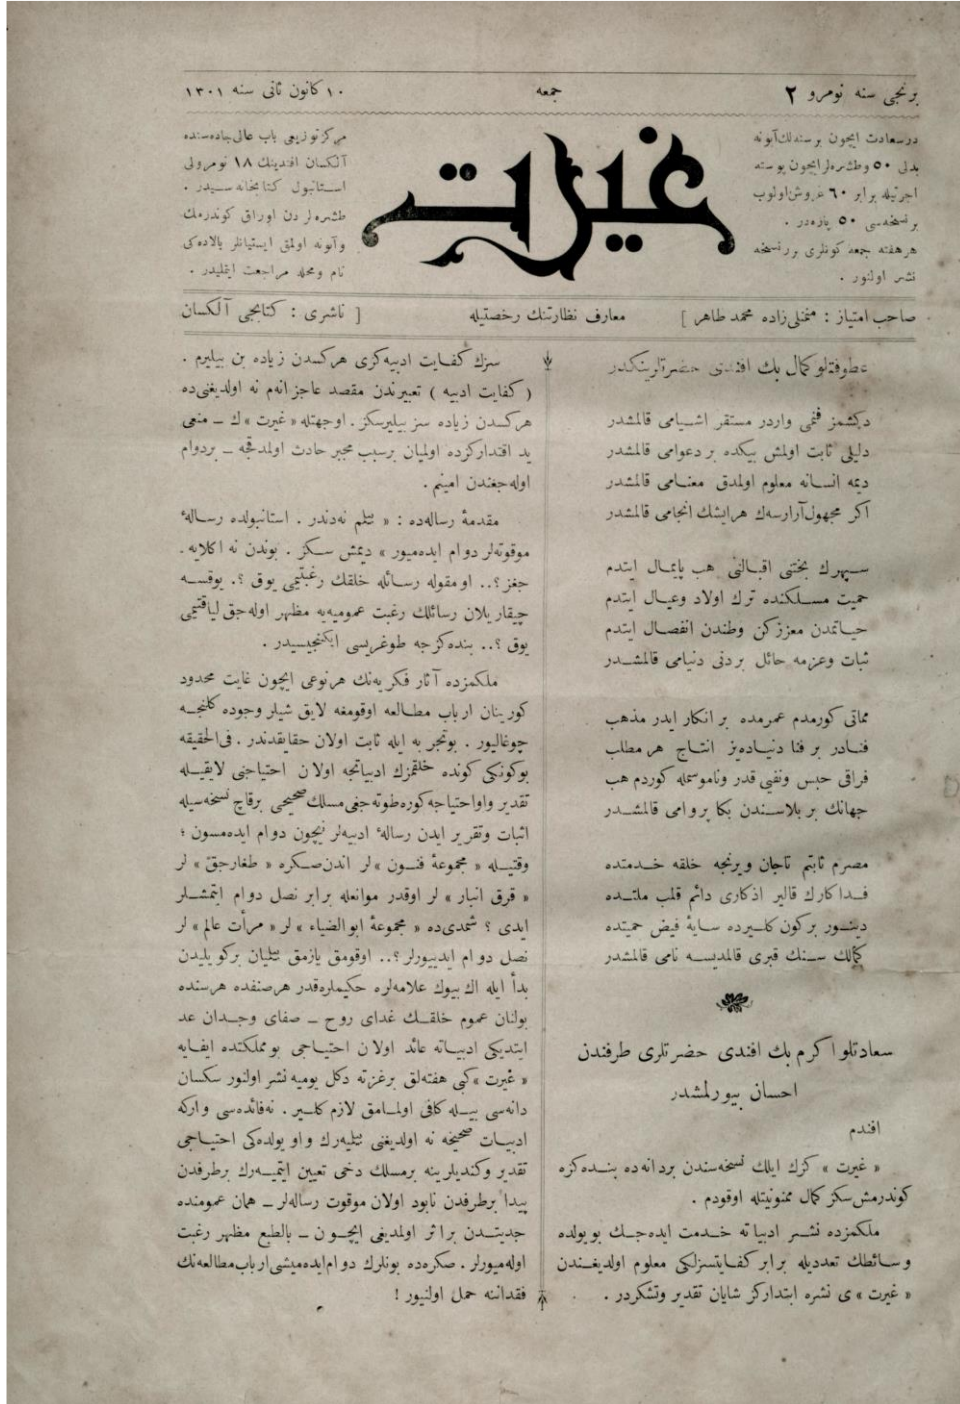 برنجی سنه نومرو ٢
جمعه
١٠ كانون ثانی سنه ١٣٠١
درسعادت ایچون بر سنه‌لك آبونه
بدلی ٥٠ وطشره‌لر ایچون پوسته
اجرتیله برابر ٦٠ غروش اولوب
بر نسخه‌سی ٥٠ پاره‌در .
هر هفته جمعه كونلری بر نسخه
نشر اولنور .
غیرت
مركز توزیعی باب عالی جاده‌سنده
آلكسان افندینك ١٨ نومرولی
استانبول كتابخانه سیدر .
طشره‌لر دن اوراق كوندرمك
وآبونه اولمق ایستیانلر بالاده‌كی
نام ومحله مراجعت ایتملیدر .
صاحب امتیاز : منمنلی زاده محمد طاهر ]
معارف نظارتنك رخصتیله
[ ناشری : كتابجی آلكسان
عطوفتلو كمال بك افندی حضرتلرینكدر
دكشمز فنمی واردر مستقر اشیامی قالمشدر
دلیلی ثابت اولمش بیكده بر دعوامی قالمشدر
دیمه انسانه معلوم اولمدق معنامی قالمشدر
اكر مجهول آرارسه‌ك هر ایشك انجامی قالمشدر
سپهرك بختنی اقبالنی هب پایمال ایتدم
حمیت مسلكنده ترك اولاد وعیال ایتدم
حیاتمدن معززكن وطندن انفصال ایتدم
ثبات وعزمه حائل بر دنی دنیامی قالمشدر
مماتی كورمدم عمرمده بر انكار ایدر مذهب
فنادر بر فنا دنیاده‌یز انتاج هر مطلب
فراقی حبس ونفیی قدر وناموسمله كوردم هب
جهانك بر بلاسندن بكا پروامی قالمشدر
مصرم ثابتم تاجان ویرنجه خلقه خدمتده
فداكارك قالیر اذكاری دائم قلب ملتده
دینسور بركون كلیرده سایهٔ فیض حمیتده
كمالك سنك قبری قالمدیسه نامی قالمشدر
سعادتلو اكرم بك افندی حضرتلری طرفندن
احسان بیورلمشدر
افندم
« غیرت » كزك ایلك نسخه‌سندن بر دانه‌ده بنده‌كزه
كوندرمش‌سكز كمال ممنونیتله اوقودم .
ملكمزده نشر ادبیاته خدمت ایده‌جك بو یولده
وسائطك تعددیله برابر كفایتسزلكی معلوم اولدیغندن
« غیرت » ی نشره ابتداركز شایان تقدیر وتشكردر .
سزك كفایت ادبیه‌كزی هركسدن زیاده بن بیلیرم .
( كفایت ادبیه ) تعبیرندن مقصد عاجزانه‌م نه اولدیغنی‌ده
هركسدن زیاده سز بیلیرسكز . اوجهتله « غیرت »ك ـ منعی
ید اقتداركزده اولمیان برسبب مجبر حادث اولمدقجه ـ بردوام
اوله‌جغندن امینم .
مقدمهٔ رساله‌ده : « بیلم نه‌دندر . استانبولده رسالهٔ
موقوته‌لر دوام ایده‌میور » دیمش سكز . بوندن نه اكلایه‌ـ
جغز ؟.. او مقوله رسائله خلقك رغبتیمی یوق ؟. یوقسه
چیقاریلان رسائلك رغبت عمومیه‌یه مظهر اوله‌جق لیاقتیمی
یوق ؟.. بنده‌كزجه طوغریسی ایكنجیسیدر .
ملكمزده آثار فكریه‌نك هر نوعی ایچون غایت محدود
كورینان ارباب مطالعه اوقومغه لایق شیلر وجوده كلنجه
چوغالیور . بوتجربه ایله ثابت اولان حقایقدندر . فی‌الحقیقه
بوكونكی كونده خلقمزك ادبیاتجه اولان احتیاجنی لایقیله
تقدیر واواحتیاجه كوره طوته‌جغی مسلك صحیحی برقاچ نسخه‌سیله
اثبات وتقریر ایدن رسالهٔ ادبیه‌لر نیچون دوام ایده‌مسون ؛
وقتیله « مجموعهٔ فنون » لر اندن صكره « طغارجق » لر
« قرق انبار » لر اوقدر موانعله برابر نصل دوام ایتمشلر
ایدی ؟ شمدی‌ده « مجموعهٔ ابوالضیاء » لر « مرأت عالم » لر
نصل دوام ایدییورلر ؟.. اوقومق یازمق بیلیان بركویلیدن
بدأ ایله اك بیوك علامه‌لره حكیملره‌قدر هرصنفده هرسنده
بولنان عموم خلقك غدای روح ـ صفای وجدان عد
ایتدیكی ادبیاته عائد اولان احتیاجی بومملكتده ایفایه
« غیرت » كبی هفته‌لق برغزته دكل یومیه نشر اولنور سكسان
دانه‌سی بیله كافی اولمامق لازم كلیر . نه‌فائده‌سی واركه
ادبیات صحیحه نه اولدیغنی بیلیه‌رك واو یولده‌كی احتیاجی
تقدیر وكندیلرینه برمسلك دخی تعیین ایتمیه‌رك برطرفدن
پیدا برطرفدن نابود اولان موقوت رساله‌لر ـ همان عمومنده
جدیتدن بر اثر اولمدیغی ایچون ـ بالطبع مظهر رغبت
اوله‌میورلر . صكره‌ده بونلرك دوام ایده‌میشی ارباب مطالعه‌نك
فقداننه حمل اولنیور !